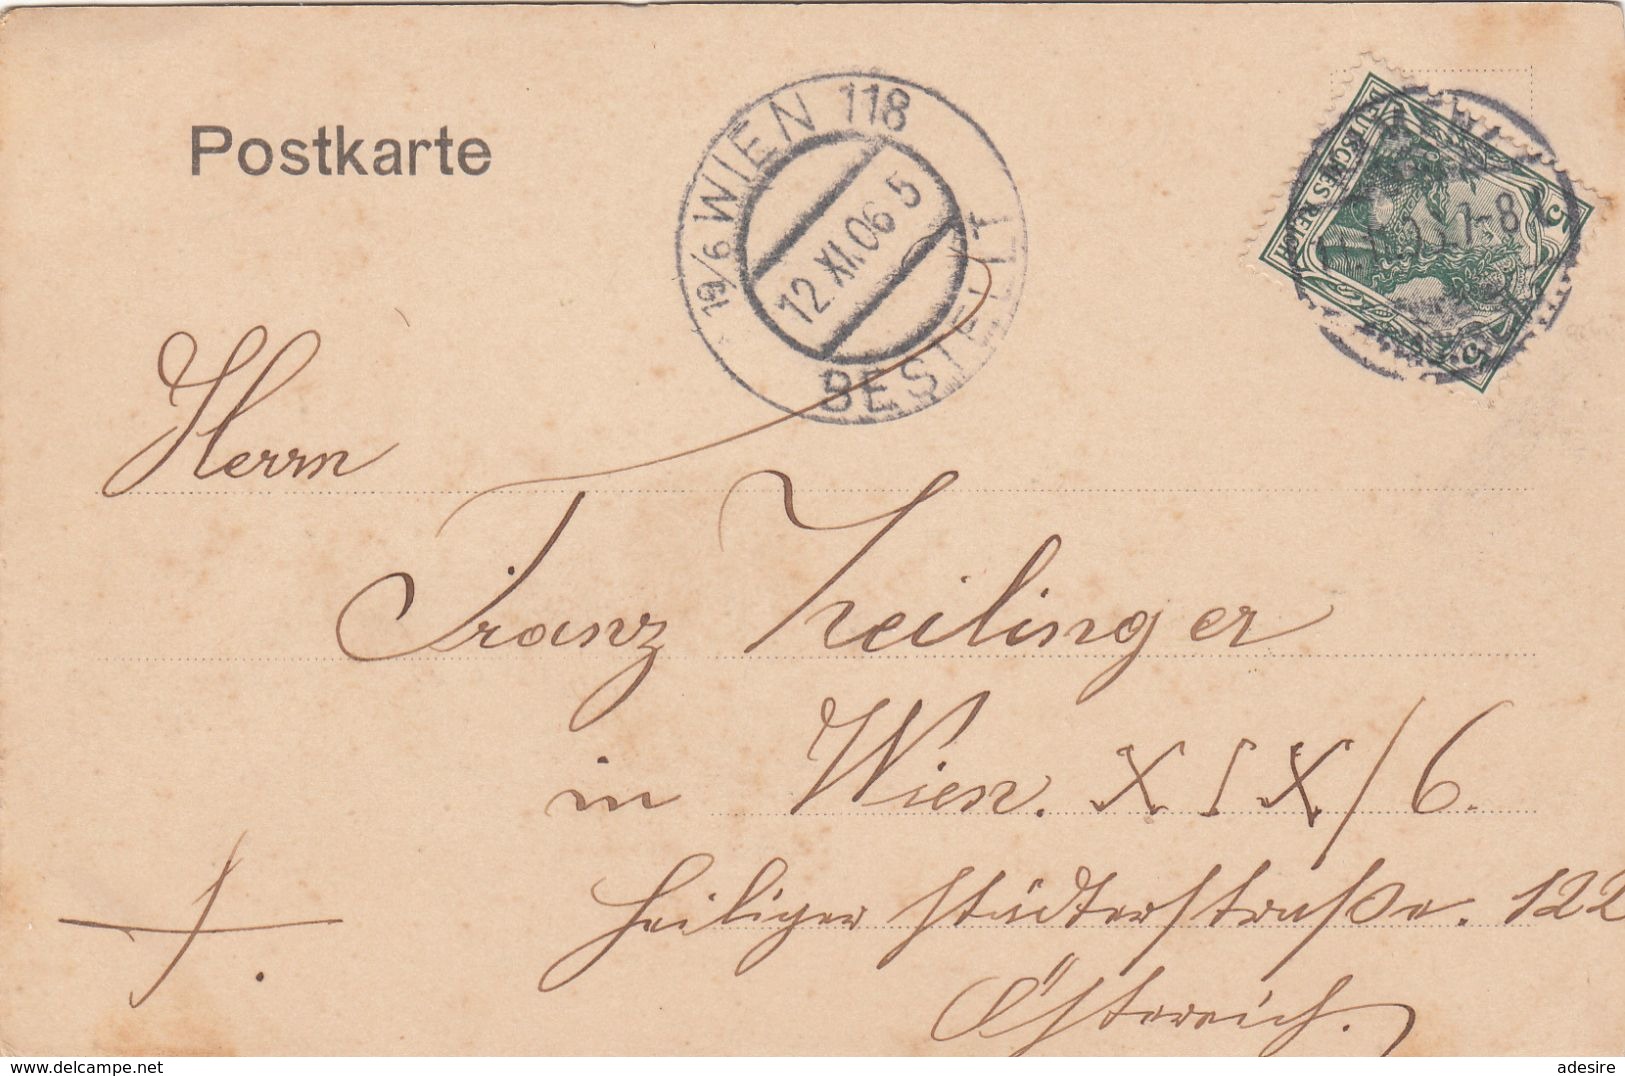 Postkarte
19/6 WIEN 118
12.XI.06 5
BESTELLT
DEUTSCHES REICH
5 5
7-8
Herrn
Franz Heilinger
in Wien. XIX/6.
Heiligerstädterstraße. 122
Österreich.
delcampe.net
adesire